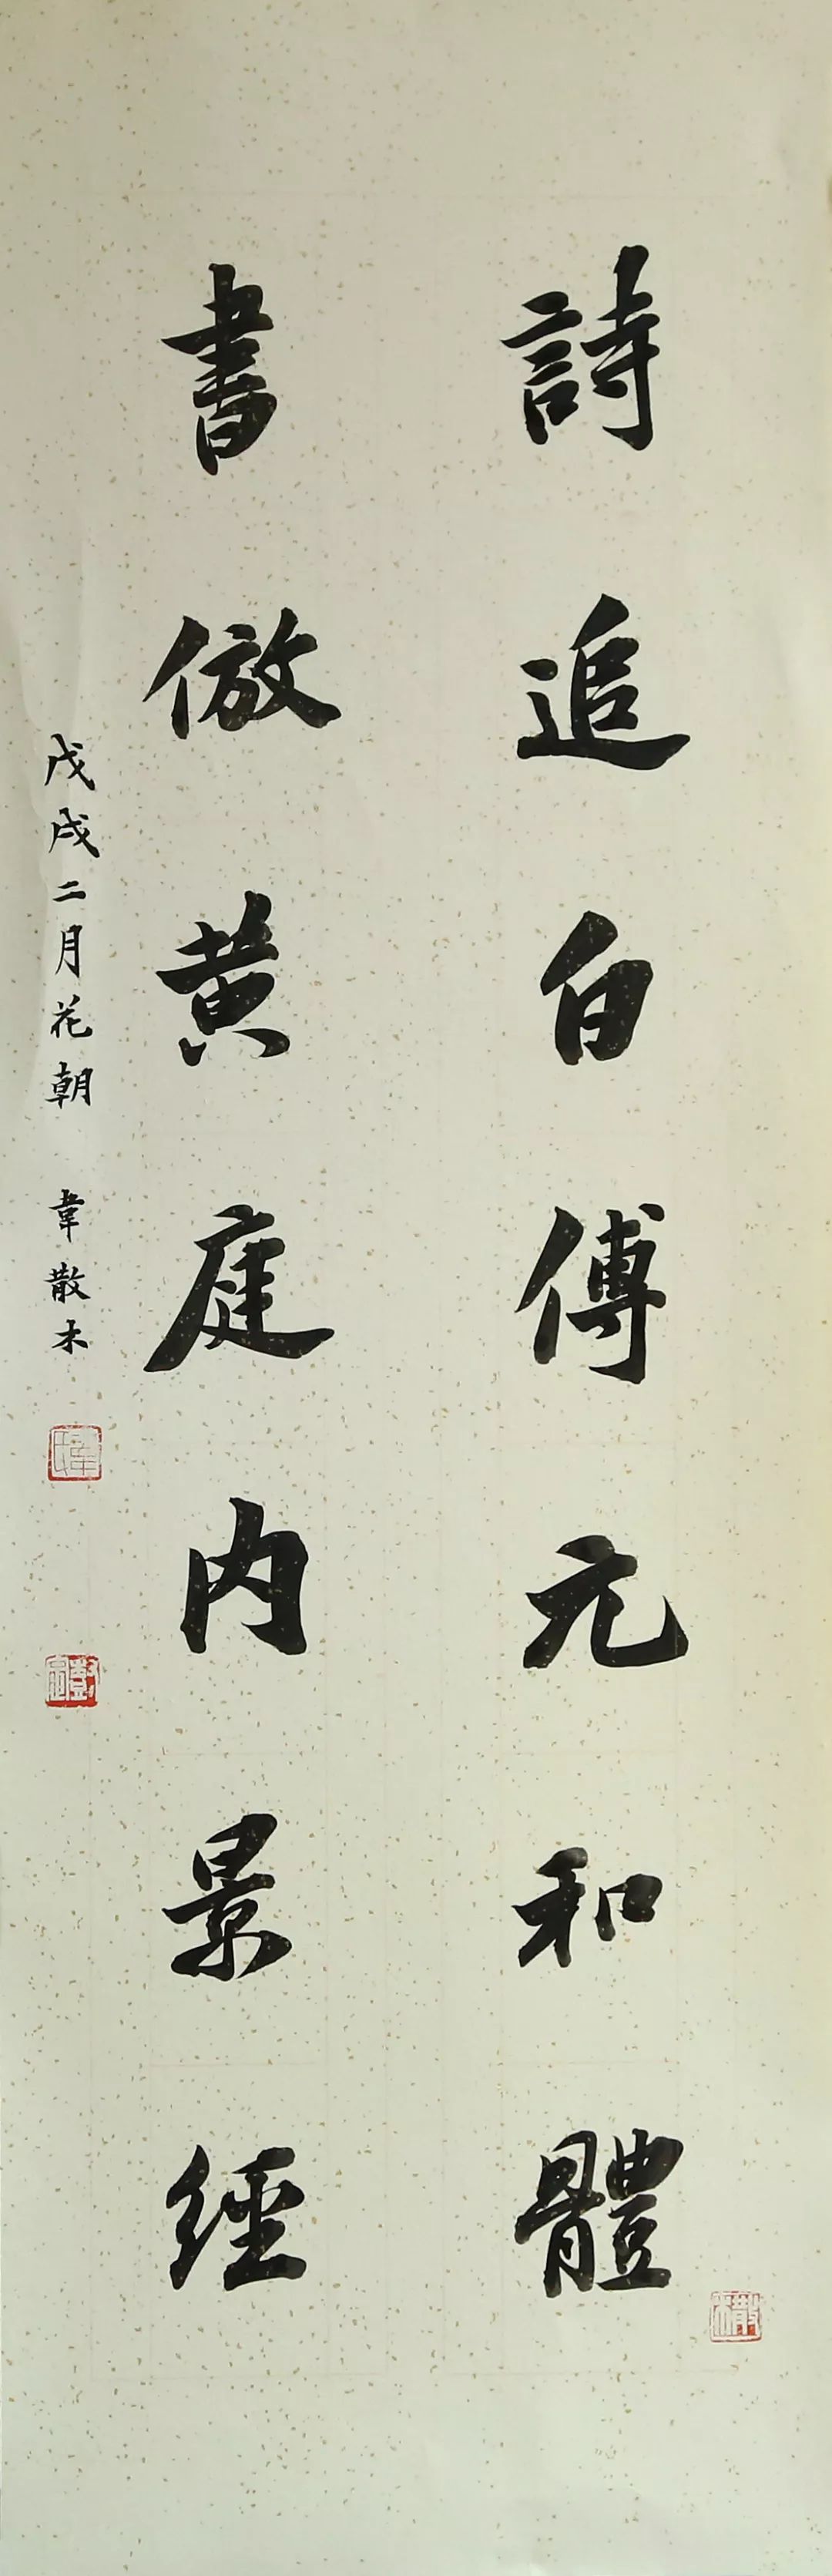 詩追白傅元和體
書倣黄庭内景經
戊戌二月花朝 韋散木